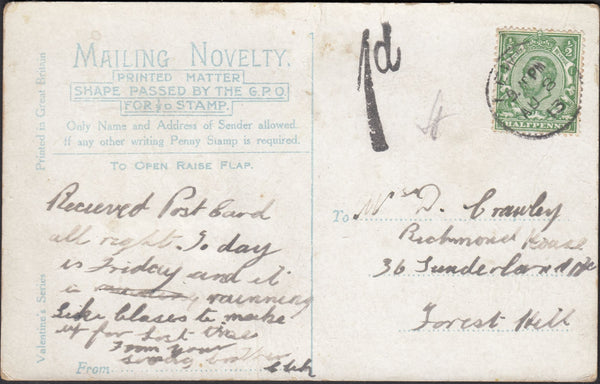 MAILING NOVELTY.
PRINTED MATTER
SHAPE PASSED BY THE G.P.O.
FOR ½D STAMP.
Only Name and Address of Sender allowed.
If any other writing Penny Stamp is required.
TO OPEN RAISE FLAP.
Printed in Great Britain
Valentine's Series
1d
HALFPENNY
Recieved Post Card
all right. To day
is Friday and it
is rainning
Like blases to make
up for lost time
From your
loving brother
From
To Mrs D. Crawley
Richmond House
36 Sunderland Rd
Forest Hill